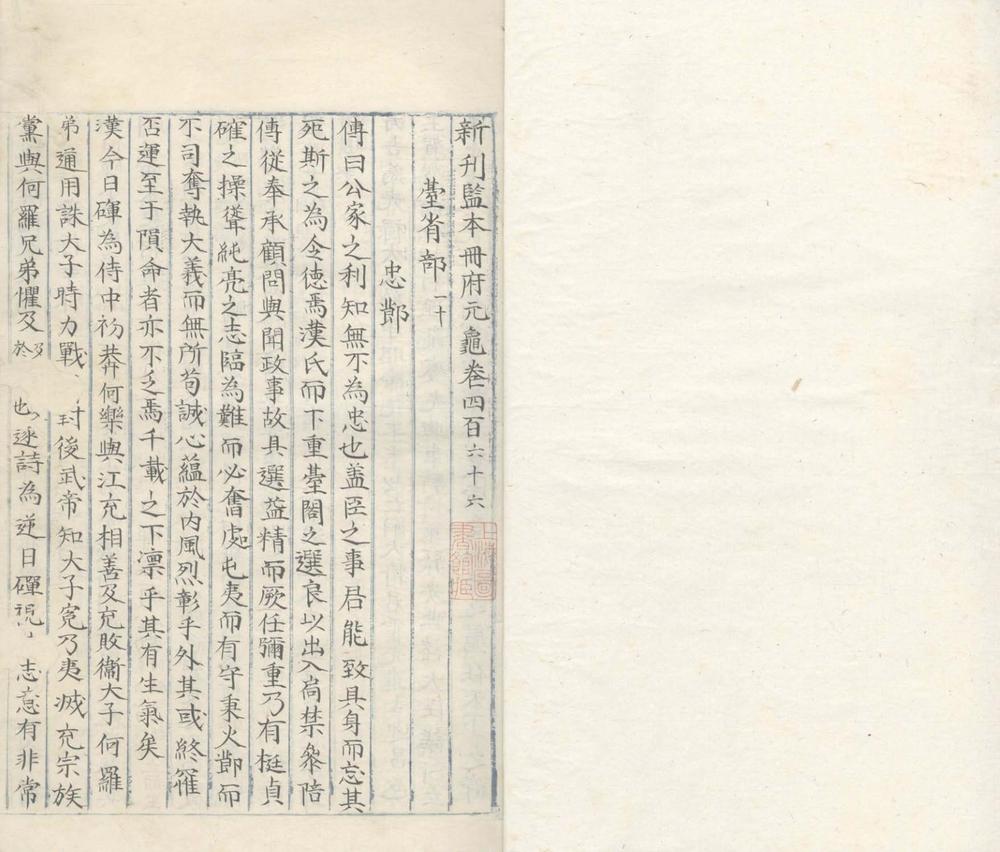 新刊監本冊府元龜卷四百六十六
臺省部 一十
忠鄼
傳曰公家之利知無不為忠也盖臣之事君能致具身而忘其
死斯之為令德焉漢氏而下重臺閣之選良以出入尚禁叅陪
傳從奉承顧問與閗政事故具選益精而厥任彌重乃有挺貞
確之操聳純亮之志臨為難而必奮處屯夷而有守秉火鄼而
不司奪執大義而無所苟誠心蘊於内風烈彰乎外其或終罹
否運至于隕命者亦不乏焉千載之下凛乎其有生氣矣
漢今日磾為侍中初莽何樂與江充相善及充敗衞大子何羅
弟通用誅大子時力戰 封後武帝知大子寃乃夷滅充宗族
黨與何羅兄弟懼及 於 也 逐詩為逆日磾視 志意有非常
上海圖書館蔵